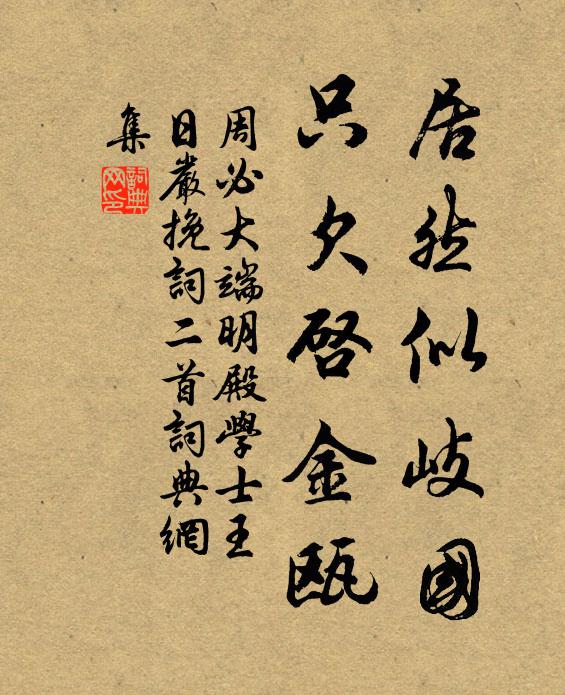 居然似岐國
只欠啓金甌
周必大端明殿學士王
日嚴挽詞二首詞典網
集
詞典網印